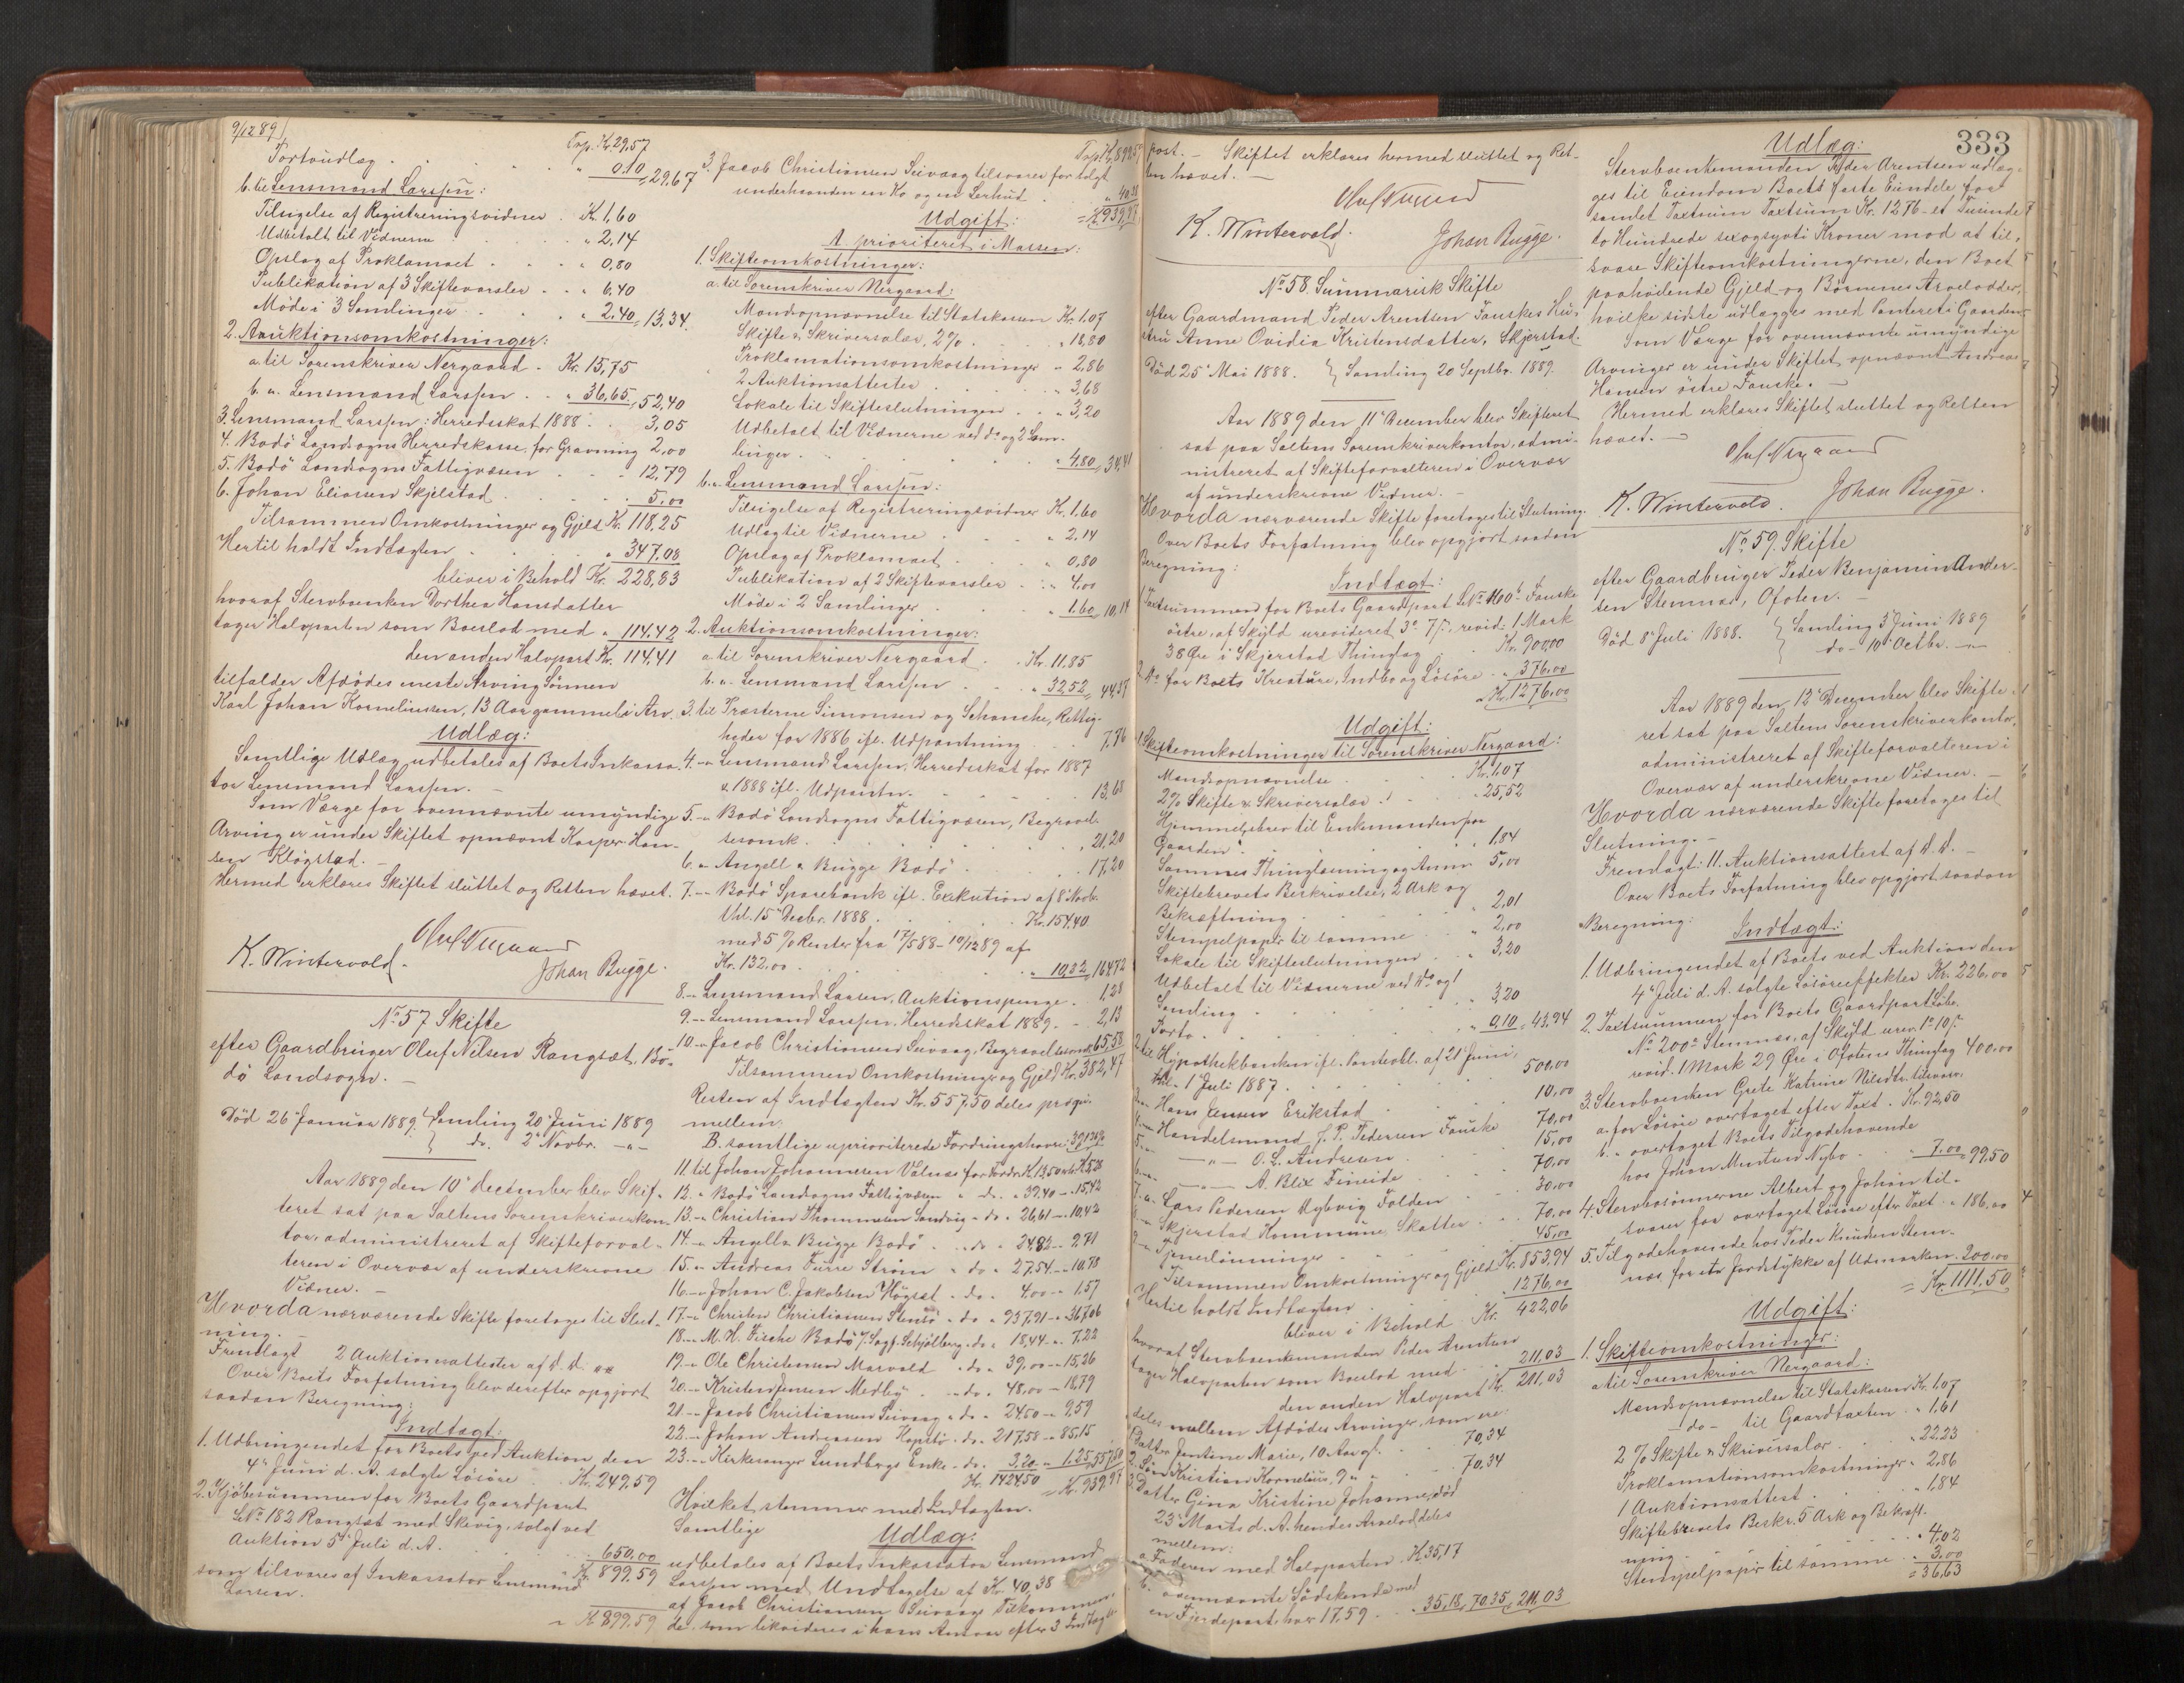 9/12 89
Trsp. Kr. 29,57
Portoudlæg . . . " 0,10 = 29,67
b. til Lensmand Larssen:
Tilsigelse af Registreringsvidner . Kr. 1,60
Udbetalt til Vidnerne . . " 2,14
Opslag af Proklamaet . . " 0,80
Publikation af 3 Skiftevarsler . . " 6,40
Møde i 3 Samlinger . . " 2,40 = 13,34.
2. Auktionsomkostninger:
a. til Sorenskriver Nergaard . Kr. 15,75
b. " Lensmand Larssen . . " 36,65 = 52,40
3. Lensmand Larssen: Herredsskat 1888 . . 3,05
4. Bodö Landsogns Herredskasse for Gravning 2,00
5. Bodö Landsogns Fattigvæsen . . 12,79
6. Johan Eliassen Skjelstad . . . 5,00
Tilsammen Omkostninger og Gjeld Kr. 118,25
Hertil holdt Indtægten . . . " 347,08
bliver i Behold Kr. 228,83
hvoraf Stervboenken Dorthea Hansdatter
tager Halvparten som Boeslod med " 114,42
den anden Halvpart Kr. 114,41
tilfalder Afdödes eneste Arving Sönnen
Karl Johan Korneliussen, 13 Aar gammel i Arv.
Udlæg:
Samtlige Udlæg udbetales af Boets Inkassa-
tor Lensmand Larssen. —
Som Værge for ovennævnte umyndige
Arving er under Skiftet opnævnt Kasper Han-
sen Kløgstad. —
Hermed erklæres Skiftet sluttet og Retten hævet.
Oluf Nergaard
K. Wintervold. Johan Bugge.
No. 57 Skifte
efter Gaardbruger Oluf Nilsen Rangsæt, Bo-
dö Landsogn. —
Död 26 Januar 1889. } Samling 20 Juni 1889
do. 2 Novbr. — " —
Aar 1889 den 10 December blev Skif-
teret sat paa Saltens Sorenskriverkon-
tor, administreret af Skifteforval-
teren i Overvær af underskrevne
Vidner. —
Hvorda nærværende Skifte foretoges til Slut-
ning. —
Fremlagt 2 Auktionsattester af D. D.
Over Boets Forfatning blev derefter opgjort
saadan Beregning:
Indtægt:
1. Udbringendet for Boets ved Auktion den
4 Juni d. A. solgte Lösöre . . Kr. 249,59
2. Kjöbesummen for Boets Gaardpart
LNo. 182 Rangsæt med Skevig, solgt ved
Auktion 5 Juli d. A. . . . 650,00
Kr. 899,59
som tilsvares af Inkassator Lensmand
Larsen.
= Kr. 899,59
Trsp. Kr. 899,59
3. Jacob Christiansen Seivaag tilsvarer for solgt
underhaanden en Ko og en Lerhud . . " 40,38
= Kr. 939,97
Udgift:
A. prioriteret i Massen:
1. Skifteomkostninger:
a. til Sorenskriver Nergaard:
Mandsopnævnelse til Statskassen Kr. 1,07
Skifte & Skriversalær, 2% . . " 18,80
Proklamationsomkostninger " 2,86
2 Auktionsattester . . " 3,68
Lokale til Skifteslutningen . . " 3,20
Udbetalt til Vidnerne ved do. og 2 Sam-
linger . . . " 4,80 = 34,41
b. " Lensmand Larssen:
Tilsigelse af Registreringsvidner Kr. 1,60
Udlæg til Vidnerne . . " 2,14
Opslag af Proklamaet . . " 0,80
Publikation af 2 Skiftevarsler . . " 4,00
Møde i 2 Samlinger . . " 1,60 = 10,14
2. Auktionsomkostninger:
a. til Sorenskriver Nergaard . . Kr. 11,85
b. " Lensmand Larssen . . " 32,52 = 44,37
3. til Præsterne Simonsen og Schanche, Rettig-
heder for 1886 ifl. Udpantning . . 7,76
4. " Lensmand Larssen, Herredsskat for 1887
& 1888 ifl. Udpantn. . . . 13,68
5. " Bodö Landsogns Fattigvæsen, Begravel-
sesomk. . . . " 21,20
6. " Angell & Bugge Bodö . . 17,20
7. " Bodö Sparebank ifl. Exekution af 8 Novbr.
thl. 15 Decbr. 1888 . . Kr. 154,40
med 5 % Renter fra 17/5 88 – 10/12 89 af
Kr. 132,00 . . . " 10,32 = 164,72
8. " Lensmand Larsen, Auktionspenge . 1,28
9. " Lensmand Larssen, Herredsskat 1889 . " 2,13
10. " Jacob Christiansen Seivaag, Begravelsesomk. 65,58
Tilsammen Omkostninger og Gjeld Kr. 382,47
Resten af Indtægten Kr. 557,50 deles
mellem:
B. samtlige uprioriterede Fordringshavere
11. til Johan Johannesen Valnæs for Fordr. Kr. 13,50 Kr. 5,28
12. " Bodö Landsogns Fattigvæsen " do. " 39,40 – 15,42
13. " Christian Thommesen Sandvig " do " 26,61 – 10,42
14. " Angell & Bugge Bodö . . do " 24,82 – 9,71
15. " Andreas Furre Ström " do " 27,54 – 10,78
16. " Johan C. Jakobsen Högset . do . 4,00 – 1,57
17. " Christen Christiansen Stensö " do " 937,91 – 367,06
18. " M. H. Fische Bodö v/ Sagf. Schjölberg " do " 18,44 – 7,22
19. " Ole Christensen Marvold " do " 39,00 – 15,26
20. " Kristen Jensen Medby . " do " 48,00 – 18,79
21. " Jacob Christiansen Seivaag " do " 24,50 – 9,59
22. " Johan Andreassen Hopstö . do . 217,58 – 85,15
23. " Kirkesanger Lundbergs Enke . do . 3,20 – 1,25 = 557,50
Kr. 1424,50 = Kr. 939,97
Hvilket stemmer med Indtægten.
Udlæg:
Samtlige
udbetales af Boets Inkassator Lensmand
Larssen med Undtagelse af Kr. 40,38
af Jacob Christiansen Seivaags Tilkommen-
de, som likvideres i hans Ansvar efter 3 Indtægts-
333
post. — Skiftet erklæres hermed sluttet og Ret-
ten hævet. —
Oluf Nergaard
K. Wintervold. Johan Bugge.
No. 58. Summarisk Skifte
efter Gaardmand Peder Arentsen Fauskes Hu-
stru Anne Ovidia Kristensdatter, Skjerstad.
Död 25 Mai 1888. } Samling 20 Septbr. 1889.
Aar 1889 den 11 December blev Skifteret
sat paa Saltens Sorenskriverkontor, admi-
nistreret af Skifteforvalteren i Overvær
af underskrevne Vidner. —
Hvorda nærværende Skifte foretoges til Slutning.
Over Boets Forfatning blev opgjort saadan
Beregning:
Indtægt:
1. Taxtsummen for Boets Gaardpart LNo. 160 b Fauske
östre, af Skyld urevideret 3 o. 7 , revid. 1 Mark
38 Øre i Skjerstad Thinglag . . Kr. 900,00
2. Do. for Boets Kreature, Indbo og Lösöre . " 376,00
= Kr. 1276,00
Udgift:
1. Skifteomkostninger til Sorenskriver Nergaard:
Mandsopnævnelse . . Kr. 1,07
2% Skifte & Skriversalær . . " 25,52
Hjemmelsbrev til Enkemanden paa
Gaarden . . . " 1,84
Sammes Thinglæsning og Anm. 5,00
Skiftebrevets Beskrivelse, 2 Ark og
Bekræftning . . . " 2,01
Stempelpapir til samme . . " 2,00
Lokale til Skifteslutningen . . " 3,20
Udbetalt til Vidnerne ved Do. og 1
Samling . . . " 3,20
Porto . . . " 0,10 = 43,94
2. til Hypothekbanken ifl. Panteobl. af 21 Juni,
thl. 1 Juli 1887 . . . 500,00
3. " Hans Jensen Erikstad . . 10,00
4. " Handelsmand J. P. Pedersen Fauske 70,00
5. " — " — O. L. Andresen . . 15,00
6. " — " — A. Blix Fineide . . 70,00
7. " Lars Pedersen Nybvig Folden . . 30,00
8. " Skjerstad Kommune, Skatter . . 70,00
9. " Tjenerlönninger . . 45,00
Tilsammen Omkostninger og Gjeld Kr. 853,94
Hertil holdt Indtægten . . 1276,00
bliver i Behold Kr. 422,06
hvoraf Stervboenkemanden Peder Arentsen
tager Halvparten som Boeslod med . . 211,03
den anden Halvpart Kr. 211,03
deles mellem Afdödes Arvinger, som ere:
1. Datter Jentine Marie, 10 Aar gl. . . 70,34
2. Sön Kristian Kornelius, 9 " " . 70,34
3. Datter Gina Kristine Johanne, död
23 Marts d. A. hendes Arvelod deles
mellem:
a. Faderen med Halvparten . Kr. 35,17
b. ovennævnte Södskende med
en Fjerdepart hver 17,59 . . " 35,18 = 70,35 = 211,03
Udlæg:
Stervboenkemanden Peder Arentsen udlæg-
ges til Eiendom Boets faste Eiendele for
samlet Taxtsum Kr. 1276 – et Tusinde
to Hundrede sexogsyvti Kroner mod at til-
svare Skifteomkostningerne, den Boet
paahvilende Gjeld og Börnenes Arvelodder,
hvilke sidste udlægges med Panteret i Gaarden.
Som Værge for ovennævnte umyndige
Arvinger er under Skiftet opnævnt Andreas
Hansen östre Fauske. —
Hermed erklæres Skiftet sluttet og Retten
hævet. —
Oluf Nergaard
K. Wintervold. Johan Bugge.
No. 59. Skifte
efter Gaardbruger Peder Benjamin Ander-
sen Stenнæs, Ofoten. —
Död 8 Juli 1888. } Samling 3 Juni 1889
do – 10 Octbr. — " —
Aar 1889 den 12 December blev Skifte-
ret sat paa Saltens Sorenskriverkontor,
administreret af Skifteforvalteren i
Overvær af underskrevne Vidner. —
Hvorda nærværende Skifte foretoges til
Slutning. —
Fremlagt: 11. Auktionsattest af D. D. —
Over Boets Forfatning blev opgjort saadan
Beregning:
Indtægt:
1. Udbringendet af Boets ved Auktion den
4 Juli d. A. solgte Lösöreeffekter Kr. 226,00
2. Taxtsummen for Boets Gaardpart Löbe-
No. 200 a Stennæs, af Skyld urev. 1 o. 10
revid. 1 Mark 29 Øre i Ofotens Thinglag 400,00
3. Stervboenken Grete Katrine Nilsdtr. tilsvarer
a. for Lösöre overtaget efter Taxt . Kr. 92,50
b. " overtaget Boets Tilgodehavende
hos Johan Nybo . . " 7,00 = 99,50
4. Stervbosönnerne Albert og Johan til-
svarer for overtaget Lösöre efter Taxt . " 186,00
5. Tilgodehavende hos Peder Knudsen Sten-
næs for et Jordstykke af Udmarken . 200,00
= Kr. 1111,50
Udgift:
1. Skifteomkostninger:
a. til Sorenskriver Nergaard:
Mandsopnævnelse til Statskassen Kr. 1,07
— do – til Gaardtaxten . " 1,61
2 % Skifte & Skriversalær . . " 22,23
Proklamationsomkostninger . " 2,86
1 Auktionsattest . . " 1,84
Skiftebrevets Beskr. 5 Ark og Bekræft-
ning . . . " 4,02
Stempelpapir til samme . . " 3,00
= 36,63